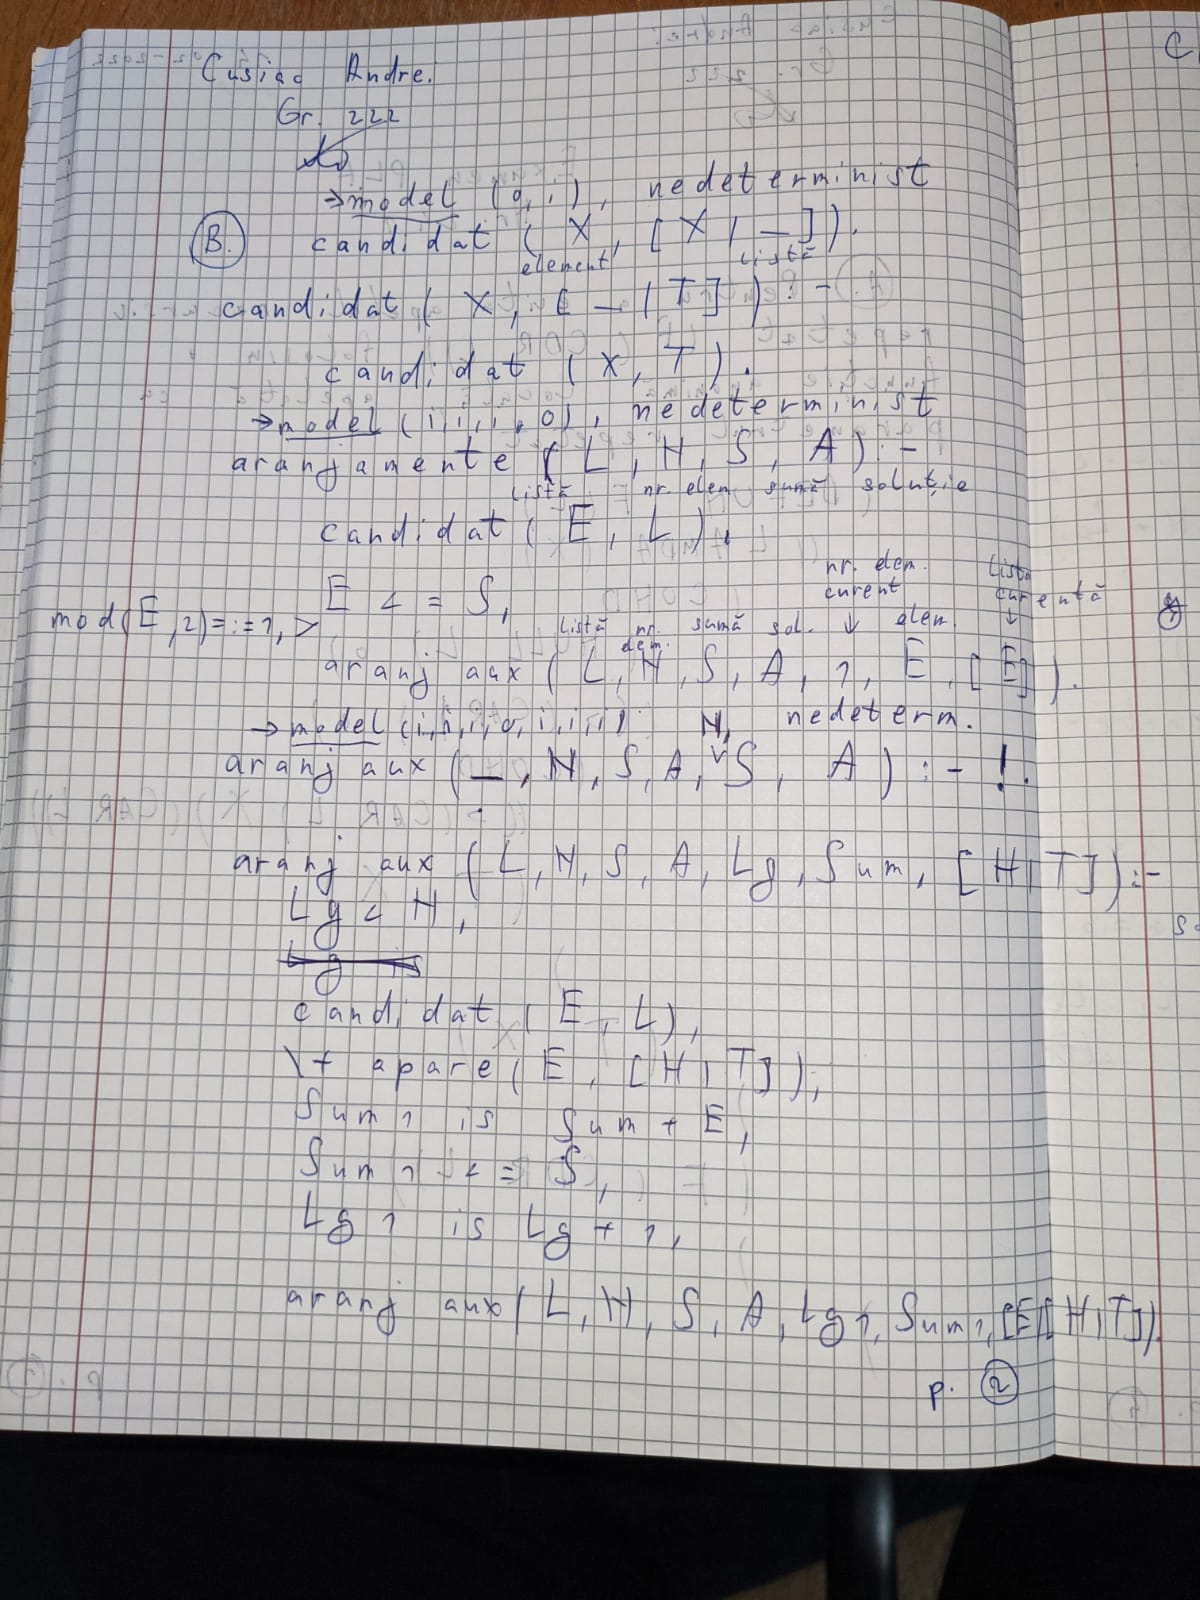 Cusiac Andrei
Gr. 222
→ model (o, i), nedeterminist
B. candidat ( X, [ X | _ ] ).
element listă
candidat ( X, [ _ | T ] ) :-
candidat ( X, T ).
→ model (i, i, i, o), nedeterminist
aranjamente ( L, N, S, A ) :-
listă nr. elem sumă soluție
candidat ( E, L ),
E < = S,
mod(E, 2) =:= 1, >
nr. elem. curent
listă curentă
listă nr. elem. sumă sol. ↓ elem. ↓
aranj aux ( L, N, S, A, 1, E, [E] ).
→ model (i, i, i, o, i, i, i) nedeterm.
aranj aux ( _, N, S, A, N, S, A ) :- !.
aranj aux ( L, N, S, A, Lg, Sum, [ H | T ] ) :-
Lg < N,
Lg is
candidat ( E, L ),
\+ apare ( E, [ H | T ] ),
Sum1 is Sum + E,
Sum1 < = S,
Lg1 is Lg + 1,
aranj aux ( L, N, S, A, Lg1, Sum1, [E|[ H | T ]).
p. 2